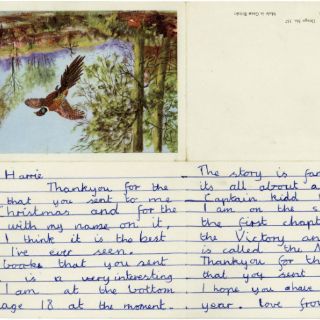 Design No. 357
Made in Great Britain
Harrie
Thankyou for the
that you sent to me
Christmas and for the
with my name on it,
I think it is the best
I've ever seen.
books that you sent
is a very interesting
I am at the bottom
age 18 at the moment.
The story is fan
its all about a
Captain Kidd
I am on the s
the first chapt
the Victory and
is called "the
Thankyou for th
that you sent
I hope you have
year. love fro